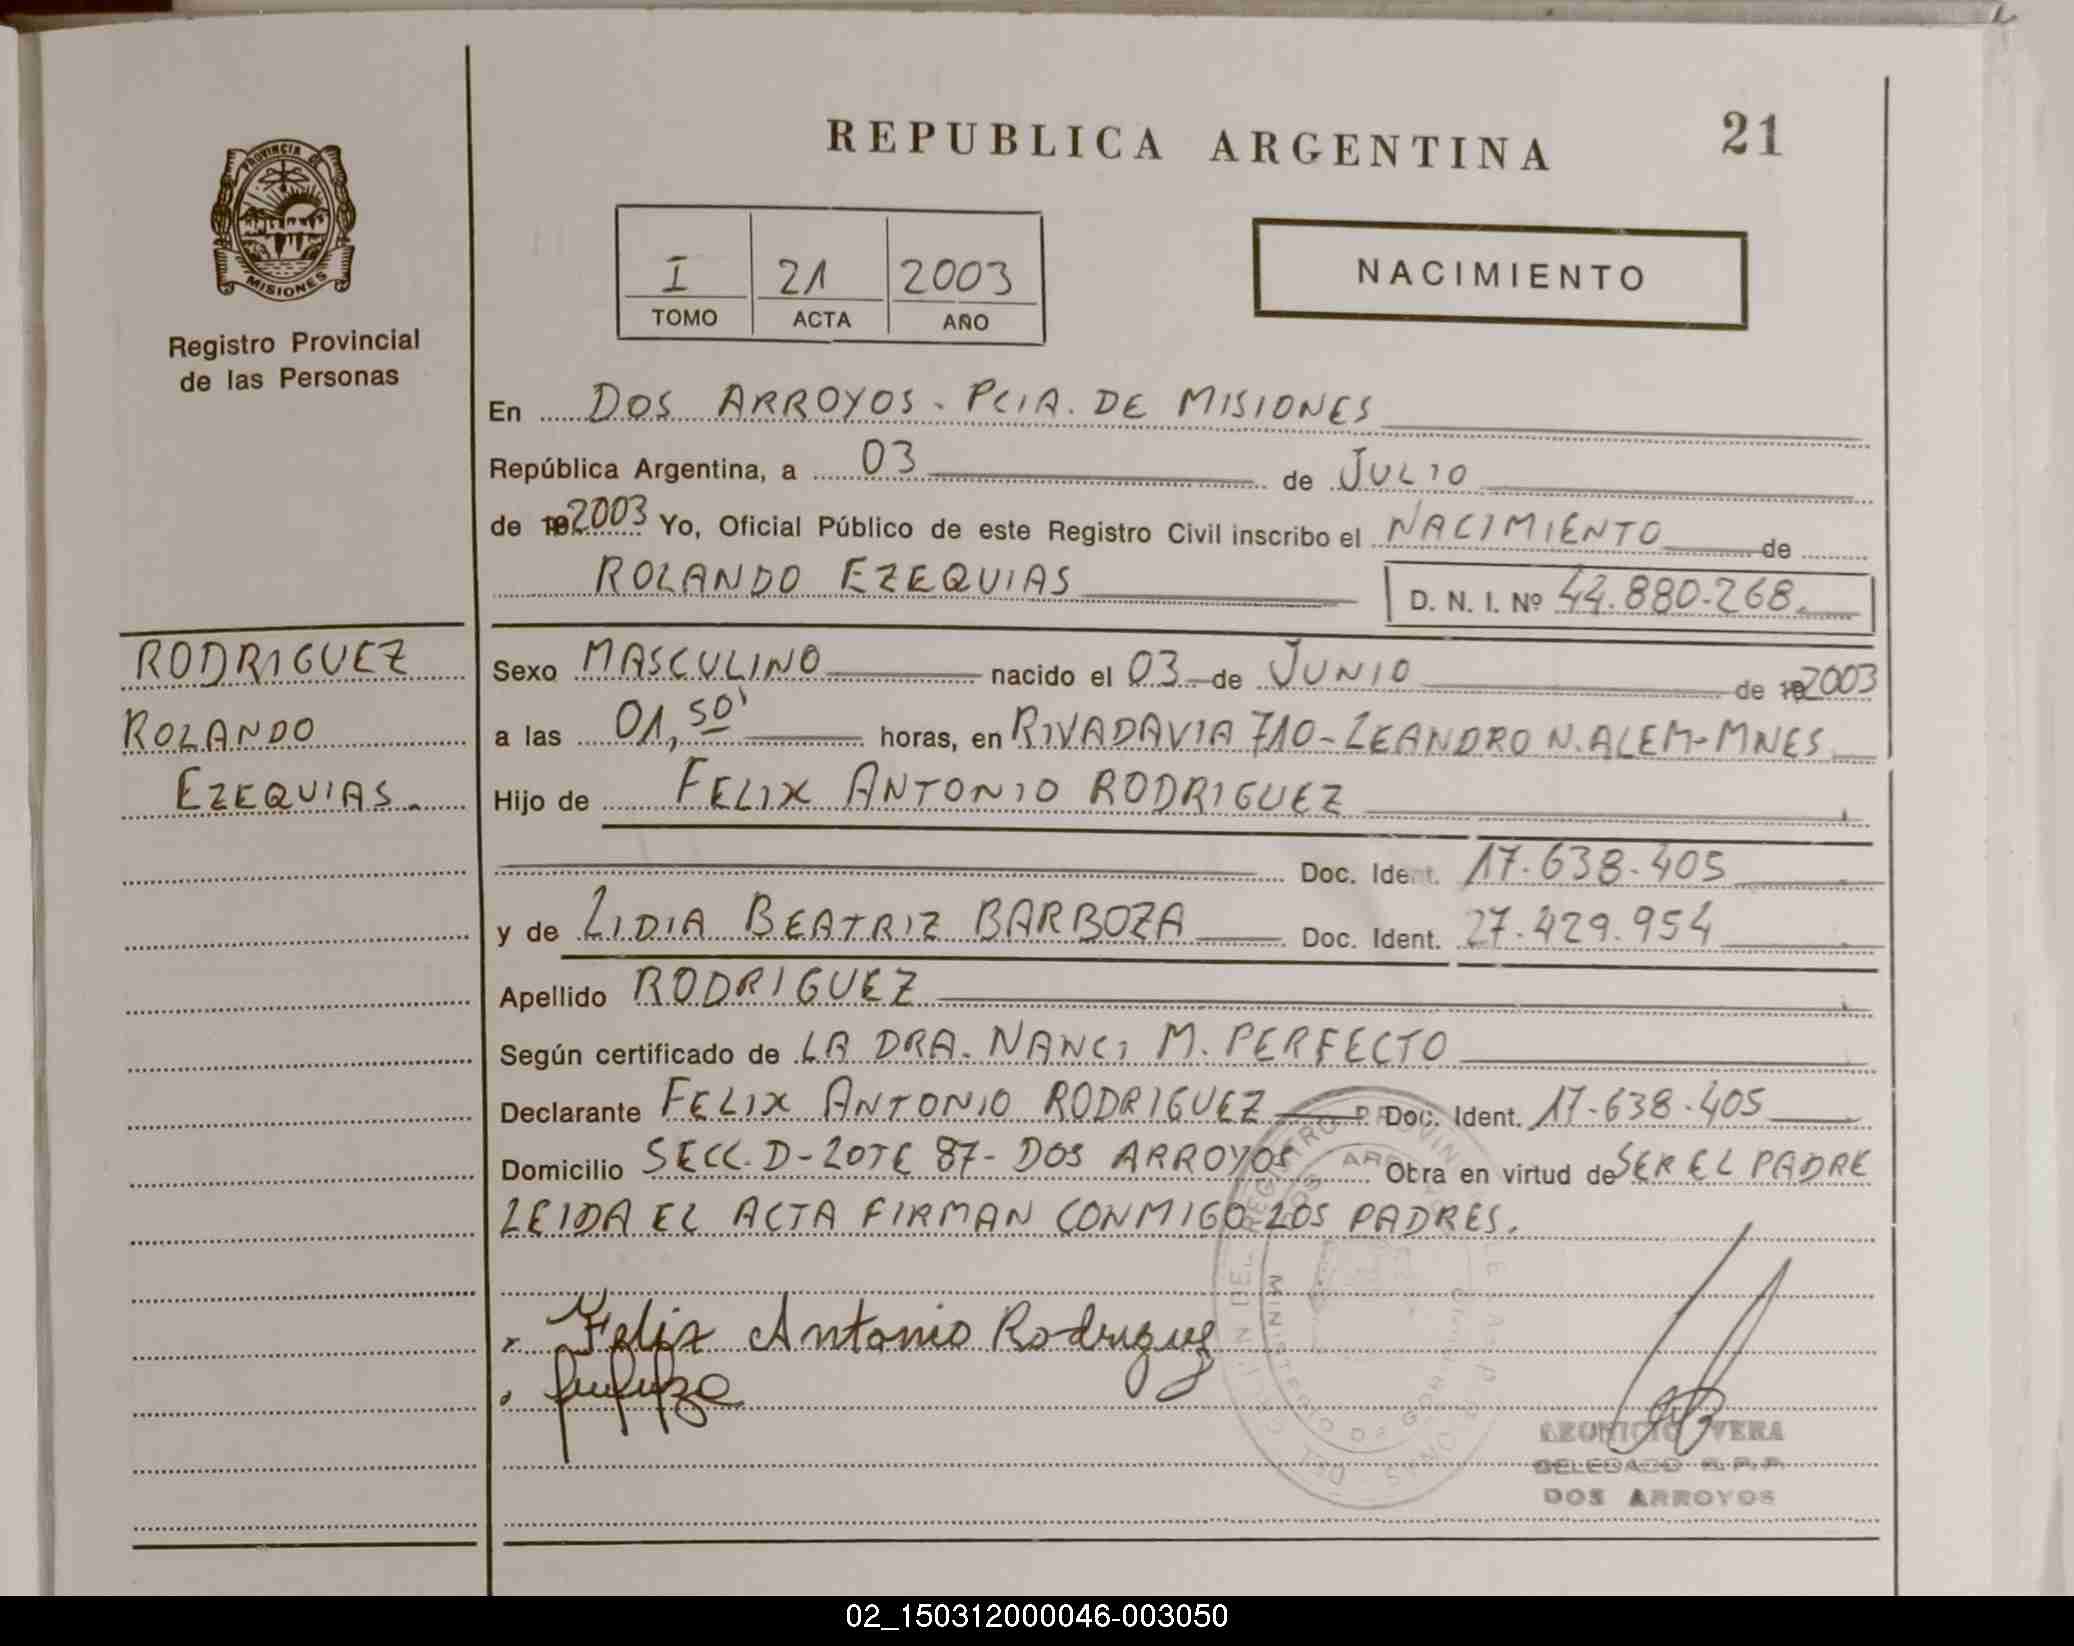 REPUBLICA ARGENTINA
21
PROVINCIA DE
MISIONES
Registro Provincial
de las Personas
I 21 2003
TOMO ACTA AÑO
NACIMIENTO
En DOS ARROYOS - PCIA. DE MISIONES
República Argentina, a 03 de JULIO
de 19 2003 Yo, Oficial Público de este Registro Civil inscribo el NACIMIENTO de
ROLANDO EZEQUIAS D. N. I. Nº 44.880.268.
RODRIGUEZ
ROLANDO
EZEQUIAS.
Sexo MASCULINO nacido el 03 de JUNIO de 19 2003
a las 01,50' horas, en RIVADAVIA 710 - LEANDRO N. ALEM - MNES
Hijo de FELIX ANTONIO RODRIGUEZ
Doc. Ident. 17.638.405
y de LIDIA BEATRIZ BARBOZA Doc. Ident. 27.429.954
Apellido RODRIGUEZ
Según certificado de LA DRA. NANCI M. PERFECTO
Declarante FELIX ANTONIO RODRIGUEZ Doc. Ident. 17.638.405
Domicilio SECC. D - LOTE 87 - DOS ARROYOS Obra en virtud de SER EL PADRE
LEIDA EL ACTA FIRMAN CONMIGO LOS PADRES.
Felix Antonio Rodriguez
LEONICIO VERA
DELEGADO R.P.P.
DOS ARROYOS
02_150312000046-003050